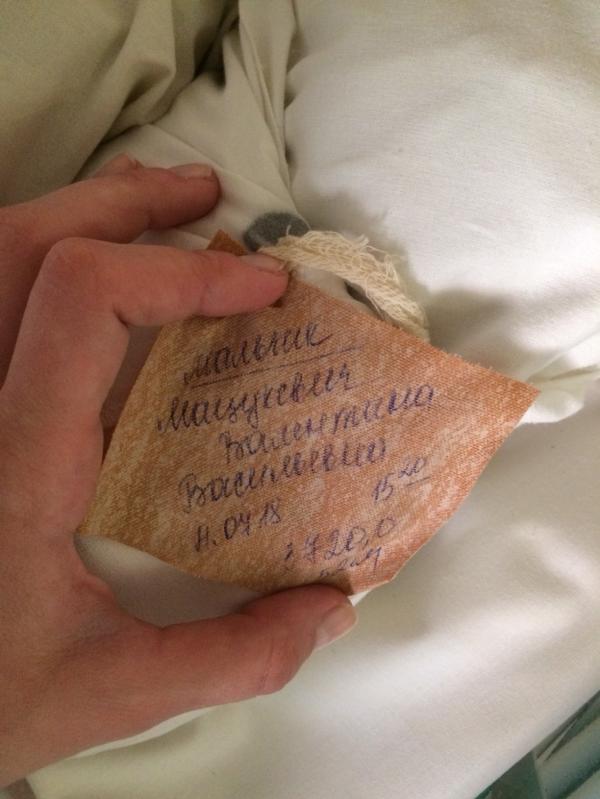 мальчик
Мацукевич
Валентина
Васильевна
15²⁰
11.04 18
3720,0